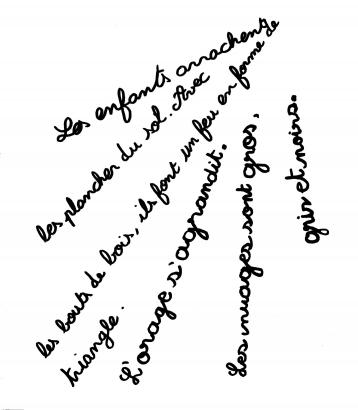 Les enfants arrachent
les plancher du sol. Avec
les bouts de bois, ils font un feu en forme de
triangle.
L'orage s'agrandit.
Les nuages sont gros,
gris et noirs.